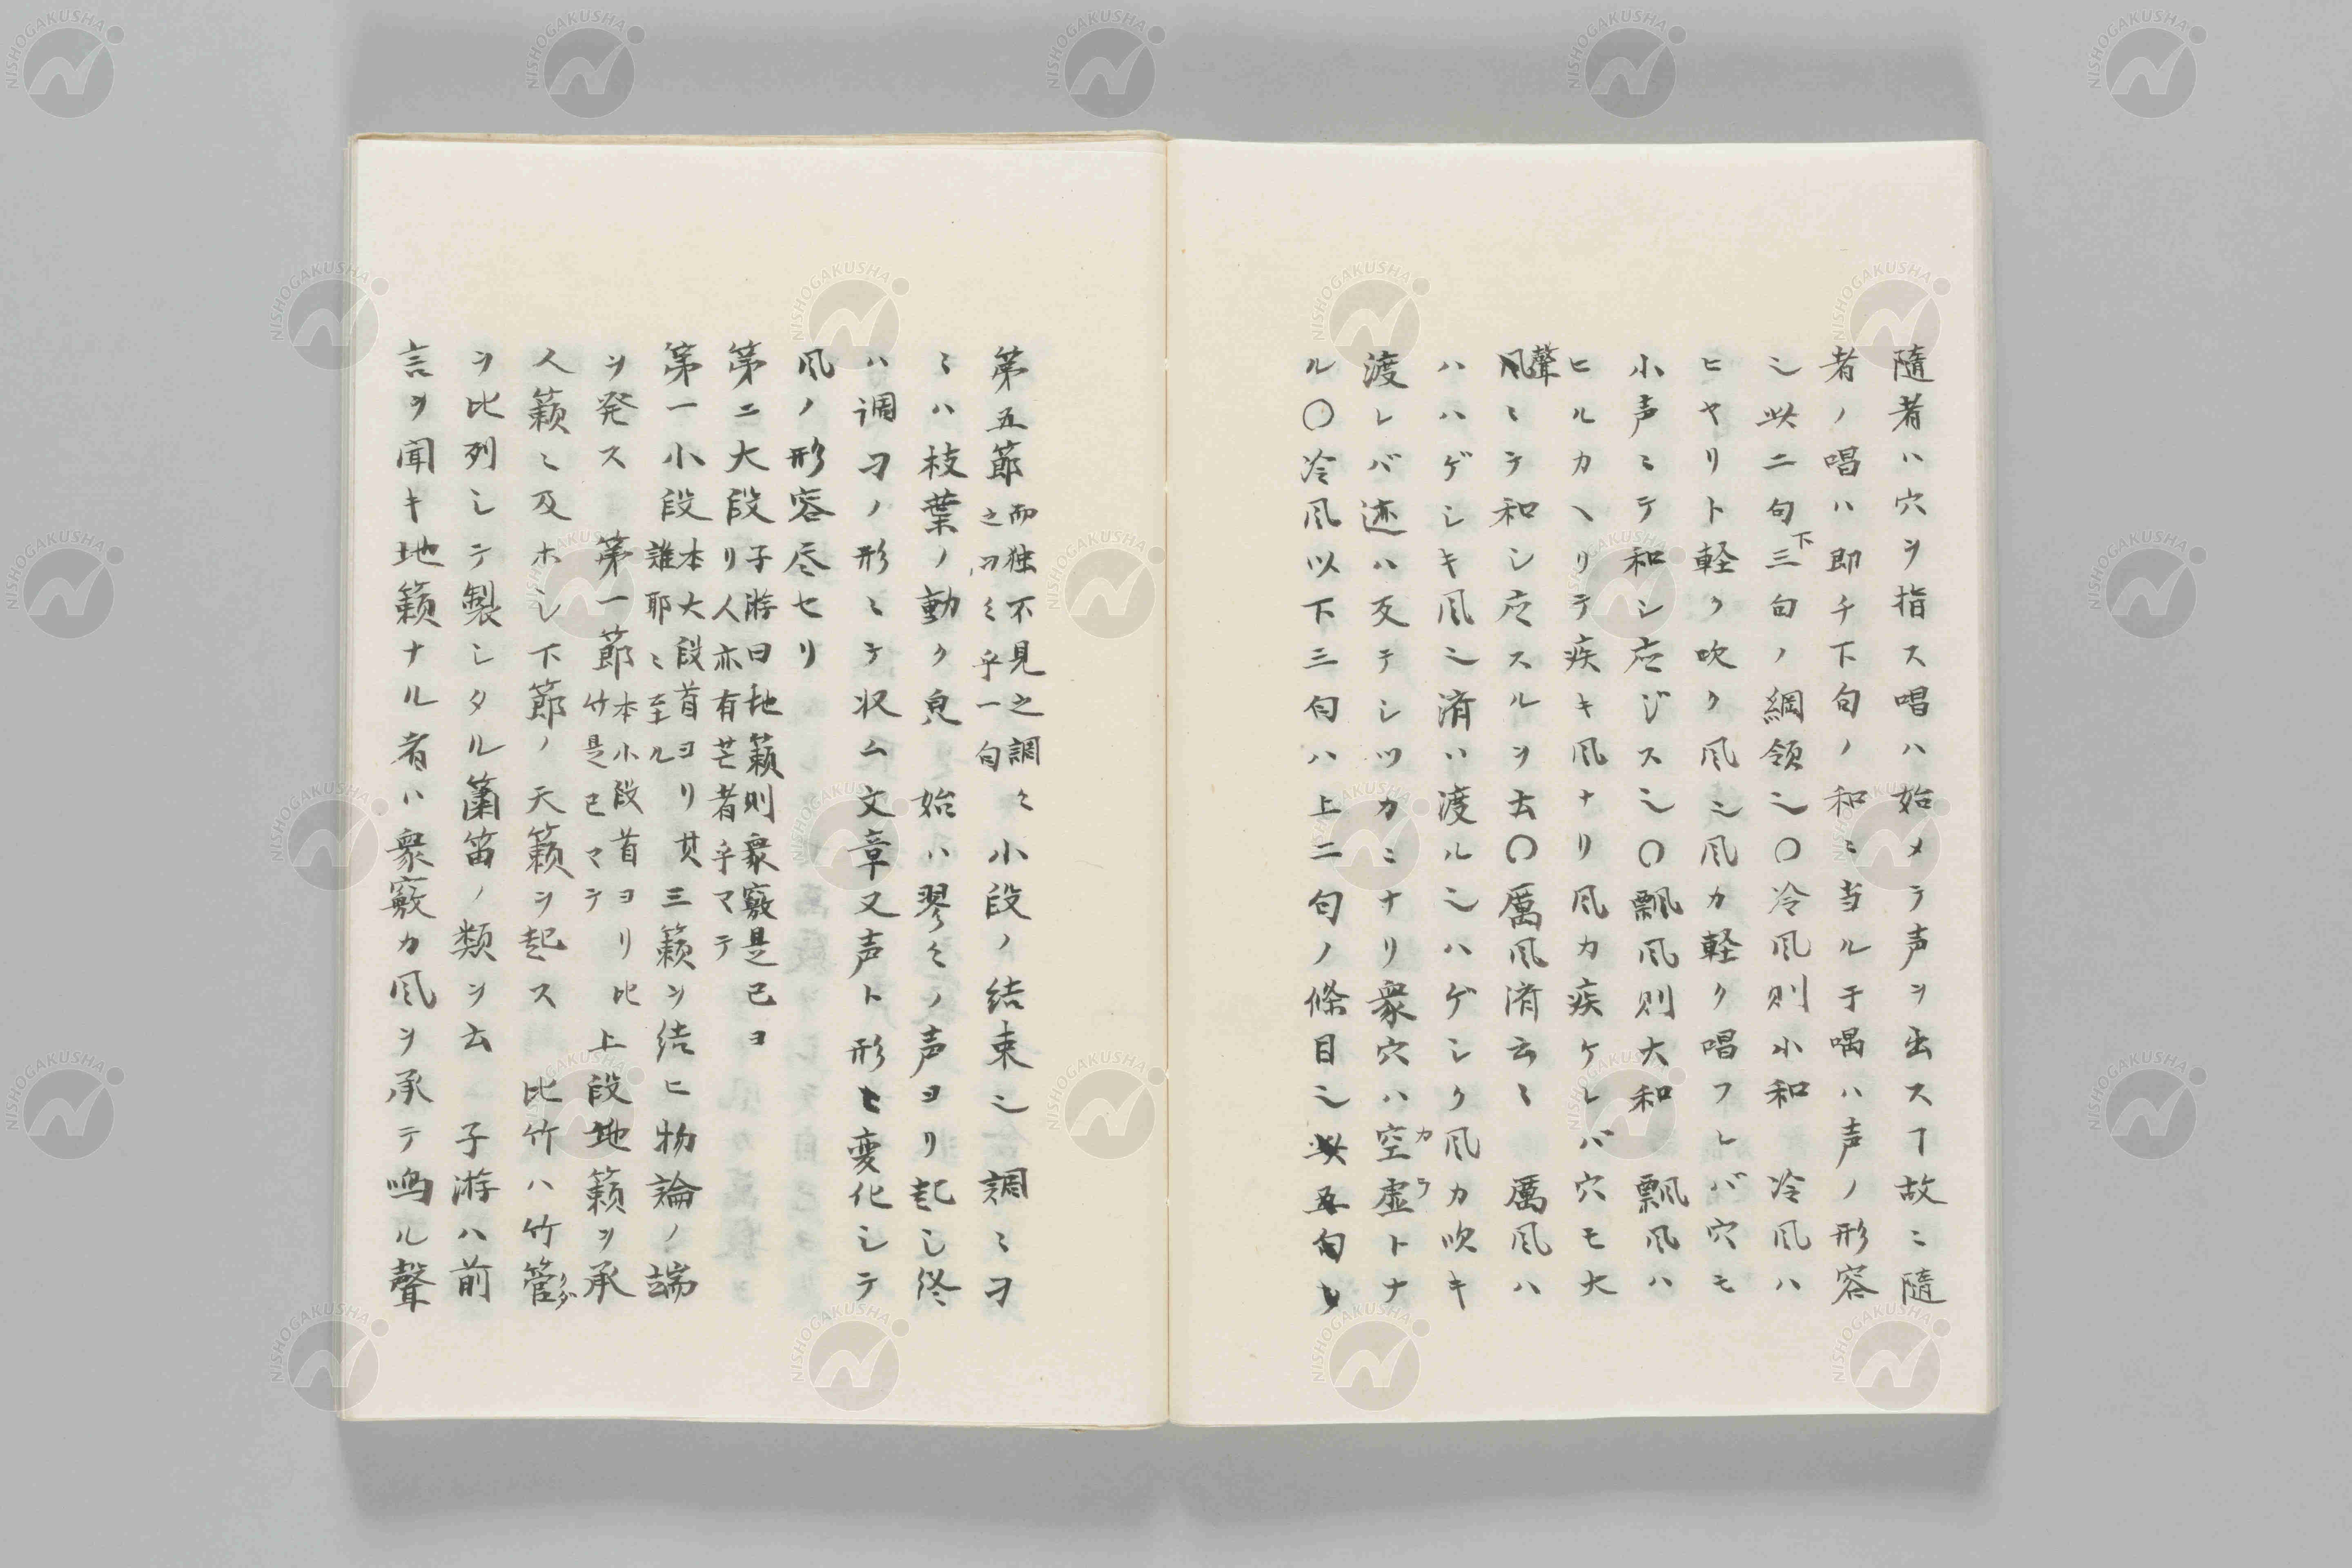 隨者ハ穴ヲ指ス唱ハ始メテ声ヲ出スヿ故ニ隨
者ノ唱ハ即チ下句ノ和ニ当ル于喁ハ声ノ形容
也此二句下三句ノ綱領也〇冷風則小和 冷風ハ
ヒヤリト軽ク吹ク風也風カ軽ク唱フレバ穴モ
小声ニテ和シ応ジス也〇飄風則大和 飄風ハ
ヒルカヘリテ疾キ風ナリ風カ疾ケレバ穴モ大
聲ニテ和シ応スルヲ云〇厲風済云〻 厲風ハ
ハハゲシキ風也済ハ渡ル也ハゲシク風カ吹キ
渡レバ迹ハ反テシヅカニナリ衆穴ハ空虚トナ
カラ
ル〇冷風以下三句ハ上二句ノ條目也此五句ヒ
第五節而独不見之調
之刁〻乎一句〻小段ノ結束也 調〻刁
〻ハ枝葉ノ動ク皃 始ハ翏〻ノ声ヨリ起シ終
ハ调刁ノ形ニテ収ム文章又声ト形と変化シテ
風ノ形容尽セリ
第二大段子游曰地籟則衆竅是已ヨ
リ人亦有芒者乎マテ
第一小段本大段首ヨリ其
誰耶ニ至ル三籟ヲ結ヒ物論ノ端
ヲ発ス 第一節本小段首ヨリ比
竹是已マテ上段地籟ヲ承
人籟ニ及ホシ下節ノ天籟ヲ起ス 比竹ハ竹管
クダ
ヲ比列シテ製シタル簫笛ノ類ヲ云 子游ハ前
言ヲ聞キ地籟ナル者ハ衆竅カ風ヲ承テ鸣ル聲
NISHOGAKUSHA